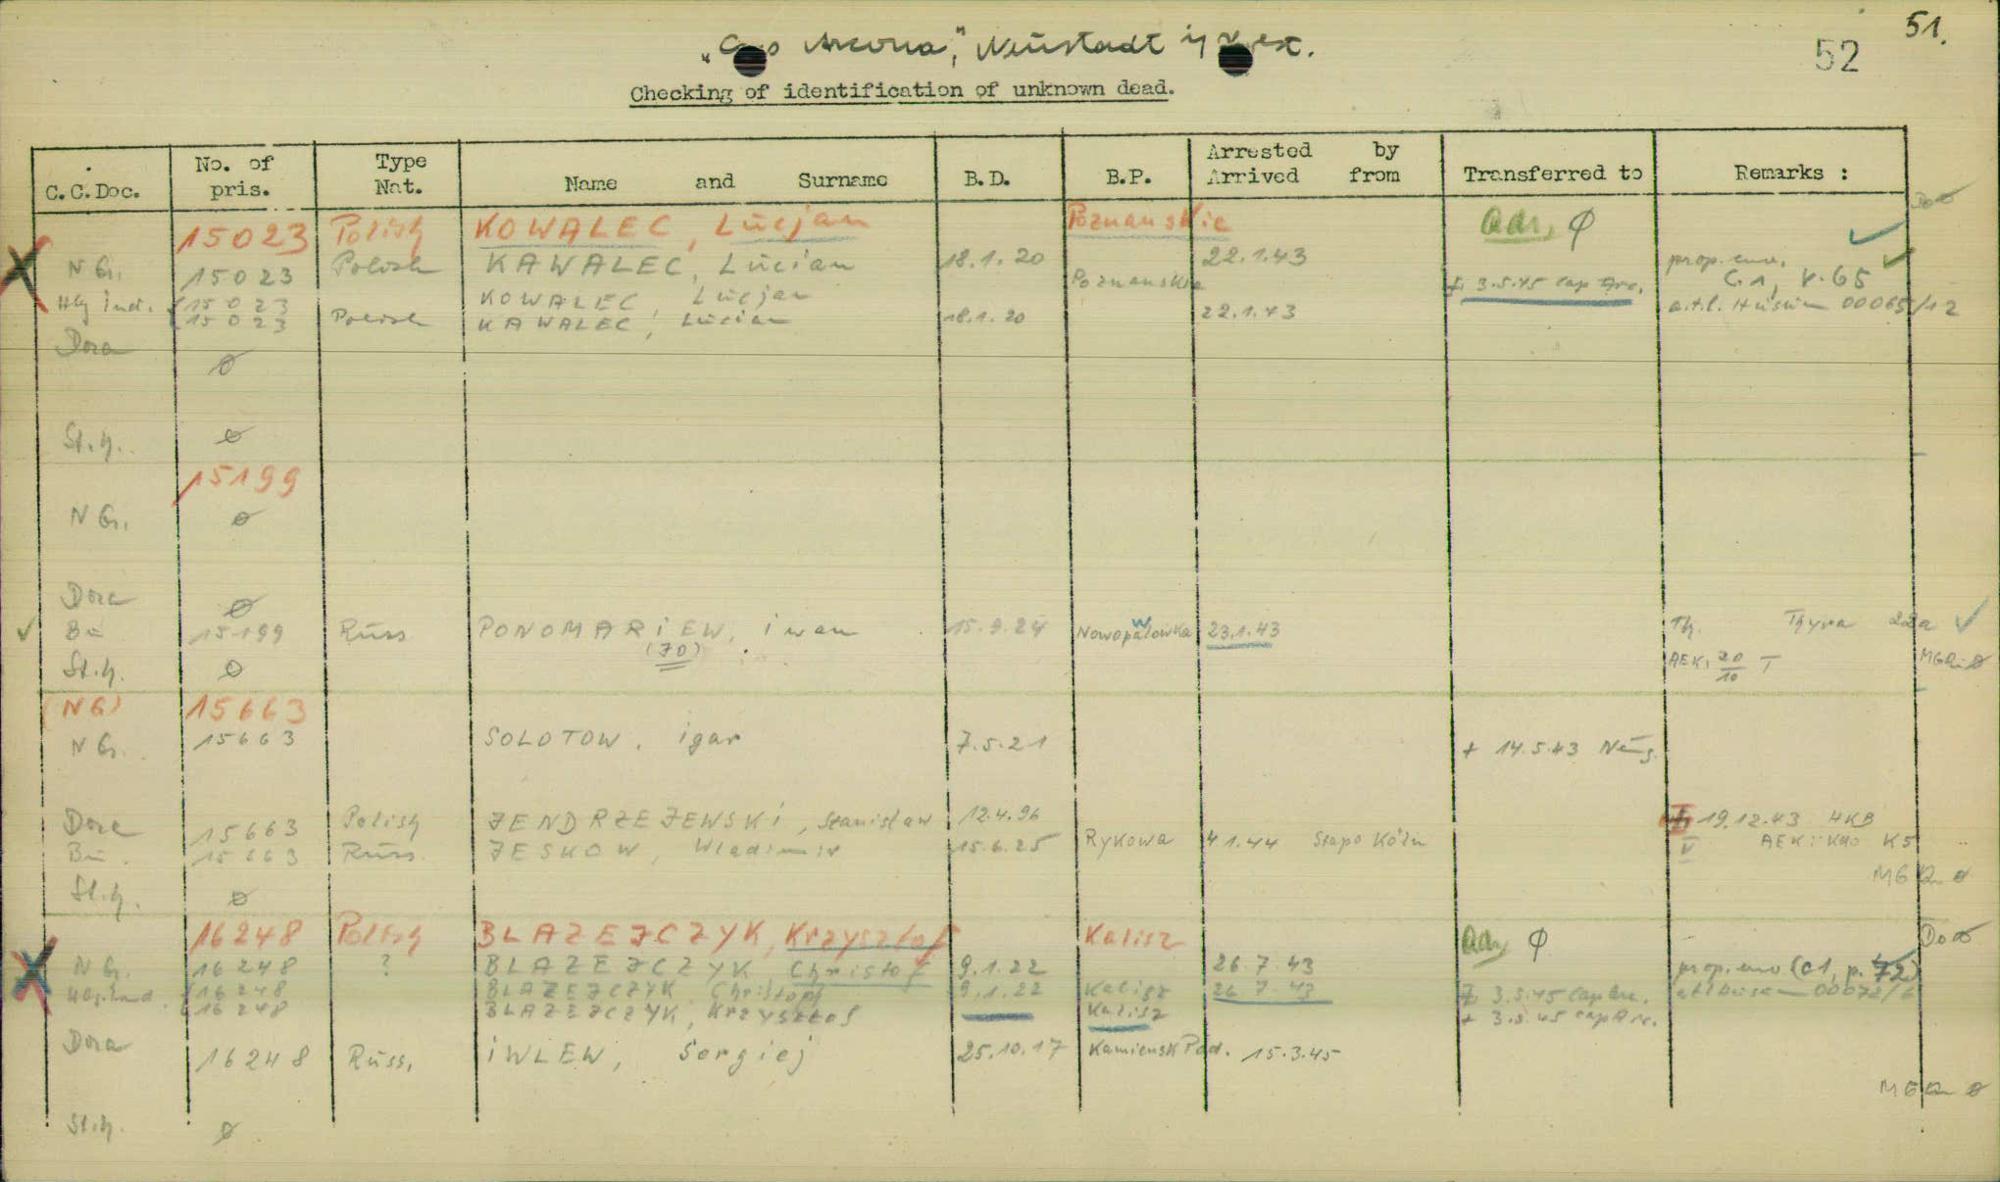 51.
52
"Cap Arcona", Neustadt i/
Checking of identification of unknown dead.
C.C.Doc. No. of pris. Type Nat. Name and Surname B.D. B.P. Arrested by Arrived from Transferred to Remarks :
15023 Polish KOWALEC, Lucjan Poznanskie adr. ø
N G. 15023 Polish KAWALEC, Lucian 18.1.20 22.1.43 prop. env. C1, p. 65
Hbg ind. 15023 KOWALEC, Lucjan Poznanskie + 3.5.45 Cap Arc. a.t.l. Husum 00065/12
15023 Polish KAWALEC, Lucian 18.1.20 22.1.43
Dora ø
St.h. ø
15199
N G. ø
Dora ø
Bu 15199 Russ PONOMARIEW, iwan 15.9.24 Nowopawlowka 23.1.43 Th. Thyra 22a
(70)
St.h. ø AEK, 20/10 T
(NG) 15663
N G. 15663 SOLOTOW, igar 7.5.21 + 14.5.43 Neug.
Dora 15663 Polish JENDRZEJEWSKI, Stanislaw 12.4.96 + 19.12.43 HKB
Bu. 15663 Russ. JESKOW, Wladimir 15.6.25 Rykowa 4.1.44 Stapo Köln AEK: K5
St.h. ø
16248 Polish BLAZEJCZYK, Krzysztof Kalisz adr. ø
N G. 16248 ? BLAZEJCZYK, Christof 9.1.22 26.7.43 prop. env (C1, p. 72)
Hbg. ind. 16248 BLAZEJCZYK, Christoph 9.1.22 Kalisz 26.7.43 + 3.5.45 Cap Arc. atl Husum 00072/6
16248 BLAZEJCZYK, Krzysztof Kalisz + 3.5.45 Cap Arc.
Dora 16248 Russ. iWLEW, Sergiej 25.10.17 Kamiensk Pod. 15.3.45
St.h. ø